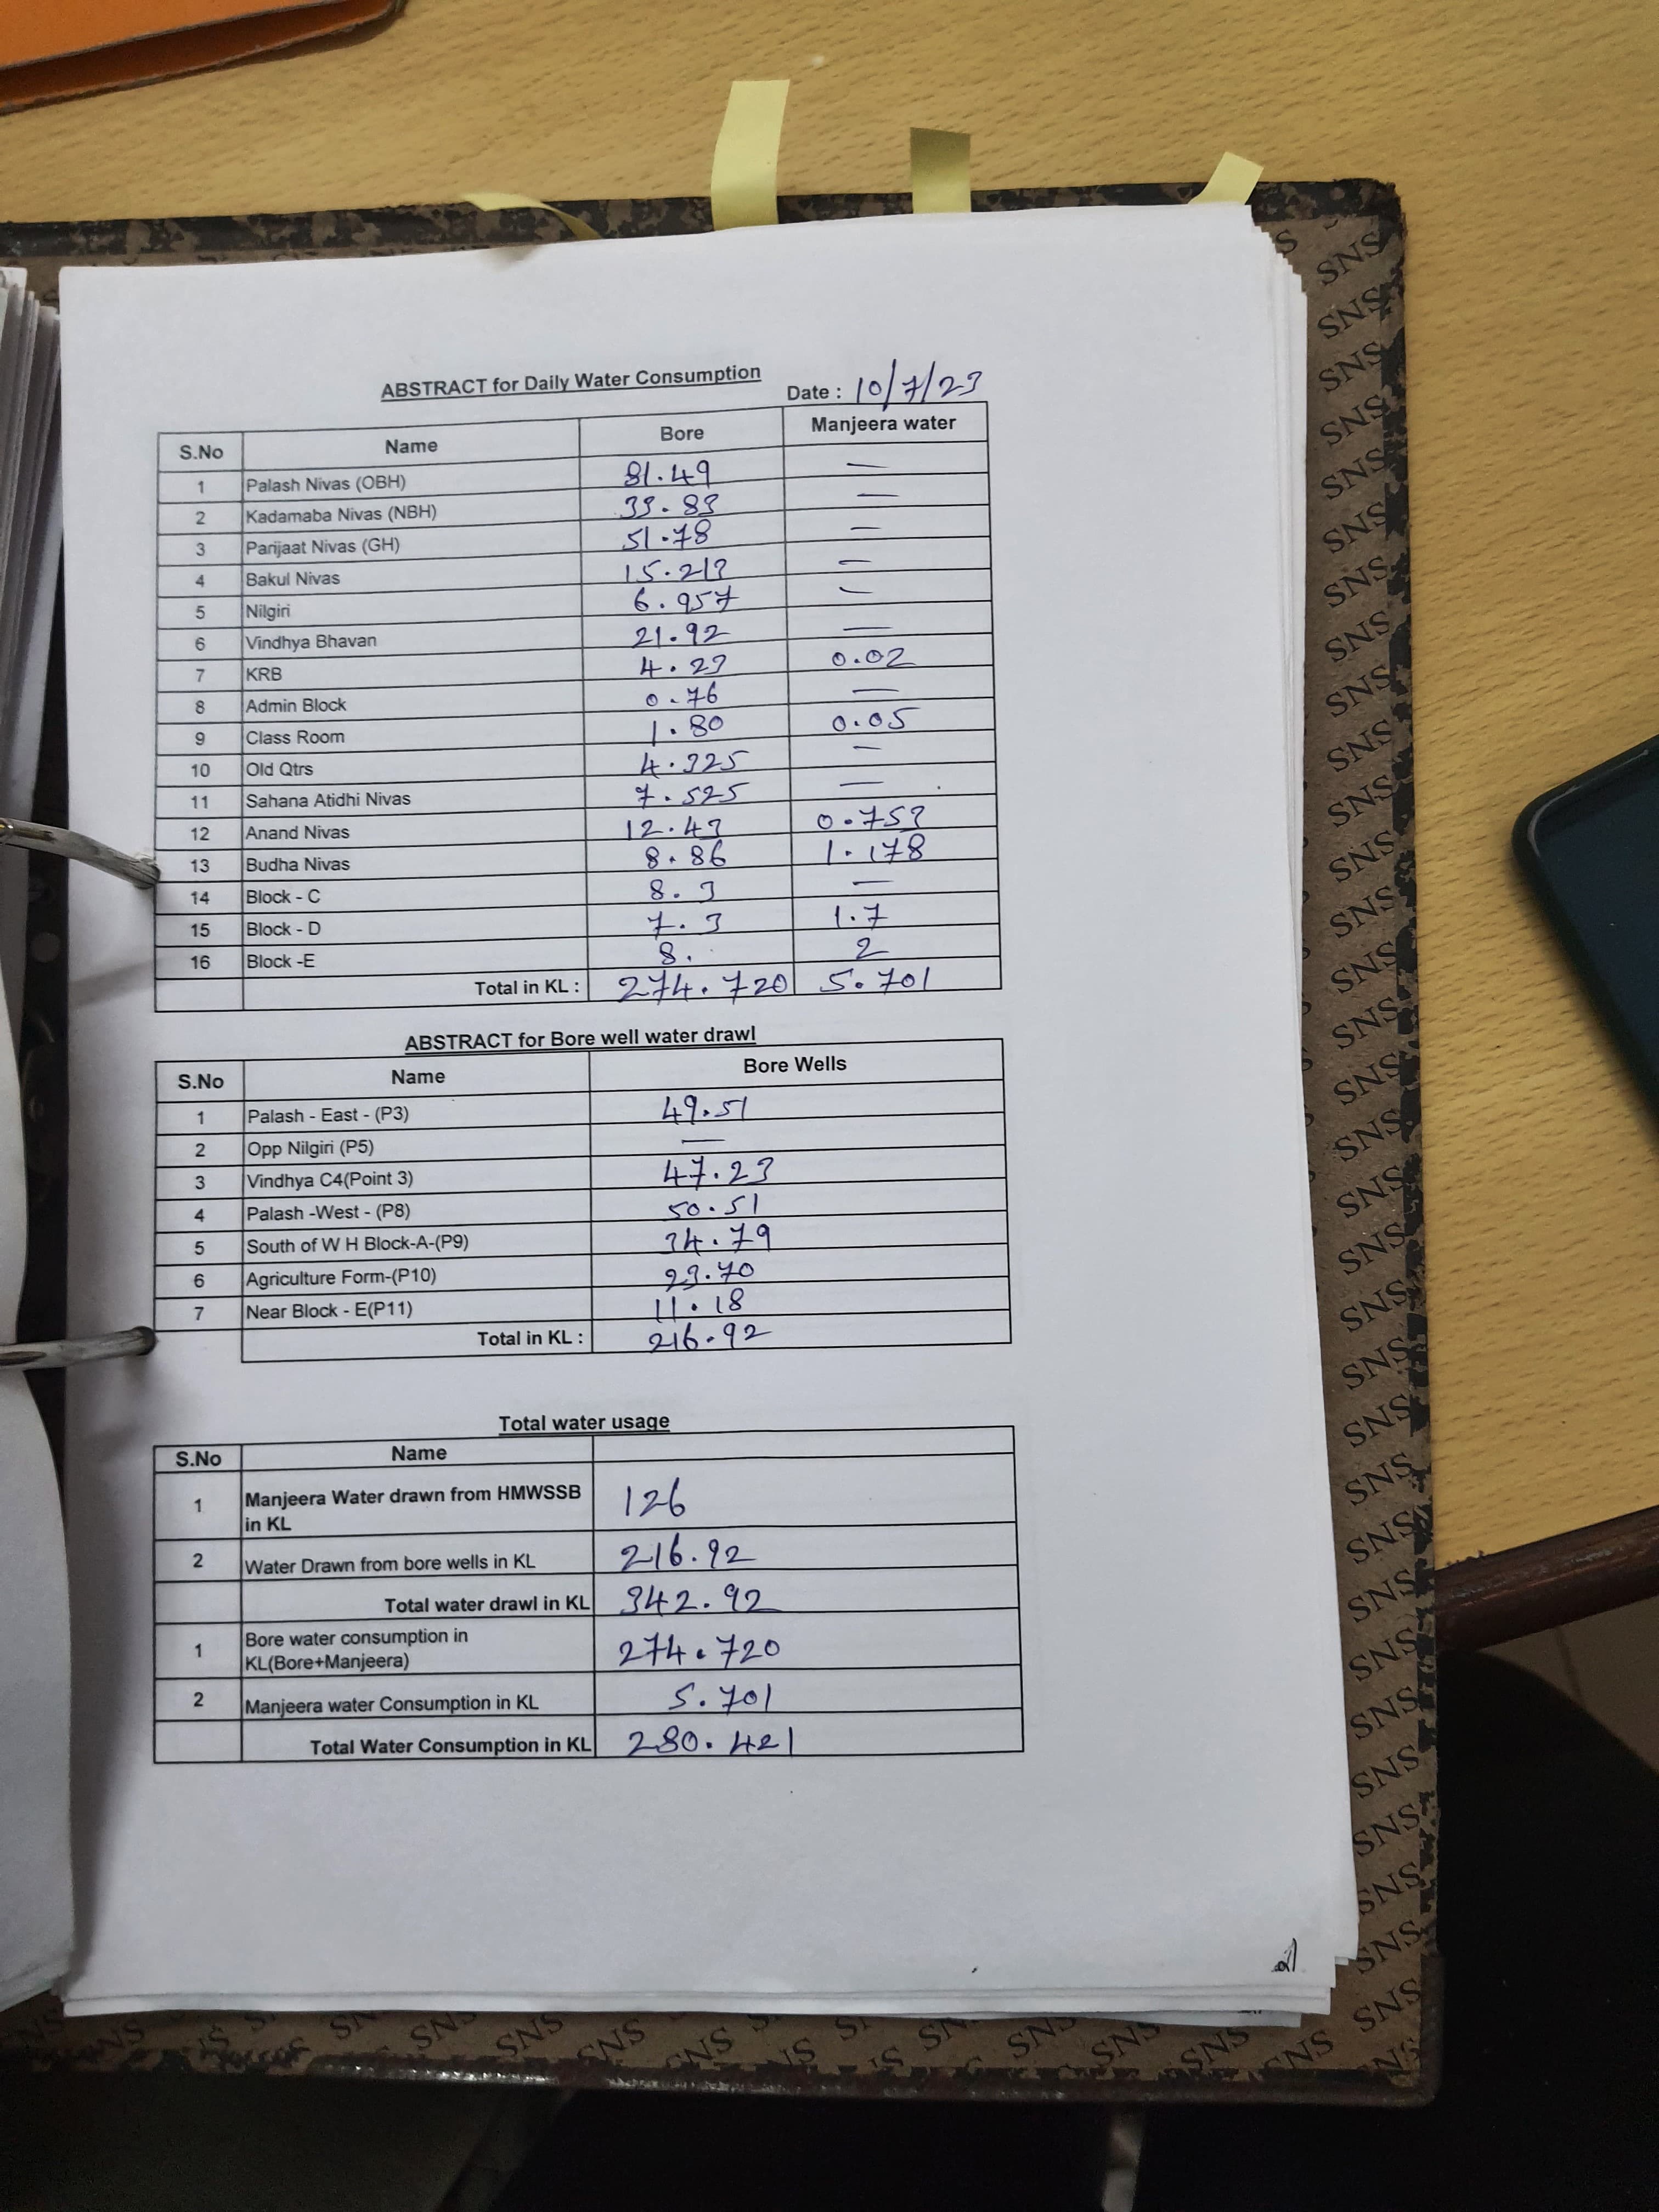 ABSTRACT for Daily Water Consumption
Date : 10/7/23
S.No Name Bore Manjeera water
1 Palash Nivas (OBH) 81.49 —
2 Kadamaba Nivas (NBH) 33.83 —
3 Parijaat Nivas (GH) 51.78 —
4 Bakul Nivas 15.213 —
5 Nilgiri 6.957 —
6 Vindhya Bhavan 21.92 —
7 KRB 4.23 0.02
8 Admin Block 0.76 —
9 Class Room 1.80 0.05
10 Old Qtrs 4.325 —
11 Sahana Atidhi Nivas 7.525 —
12 Anand Nivas 12.43 0.753
13 Budha Nivas 8.86 1.178
14 Block - C 8.3 —
15 Block - D 7.3 1.7
16 Block -E 8. 2
Total in KL : 274.720 5.701
ABSTRACT for Bore well water drawl
S.No Name Bore Wells
1 Palash - East - (P3) 49.51
2 Opp Nilgiri (P5) —
3 Vindhya C4(Point 3) 47.23
4 Palash -West - (P8) 50.51
5 South of W H Block-A-(P9) 34.79
6 Agriculture Form-(P10) 23.70
7 Near Block - E(P11) 11.18
Total in KL : 216.92
Total water usage
S.No Name
1 Manjeera Water drawn from HMWSSB 126
in KL
2 Water Drawn from bore wells in KL 216.92
Total water drawl in KL 342.92
1 Bore water consumption in
KL(Bore+Manjeera) 274.720
2 Manjeera water Consumption in KL 5.701
Total Water Consumption in KL 280.421
SNS